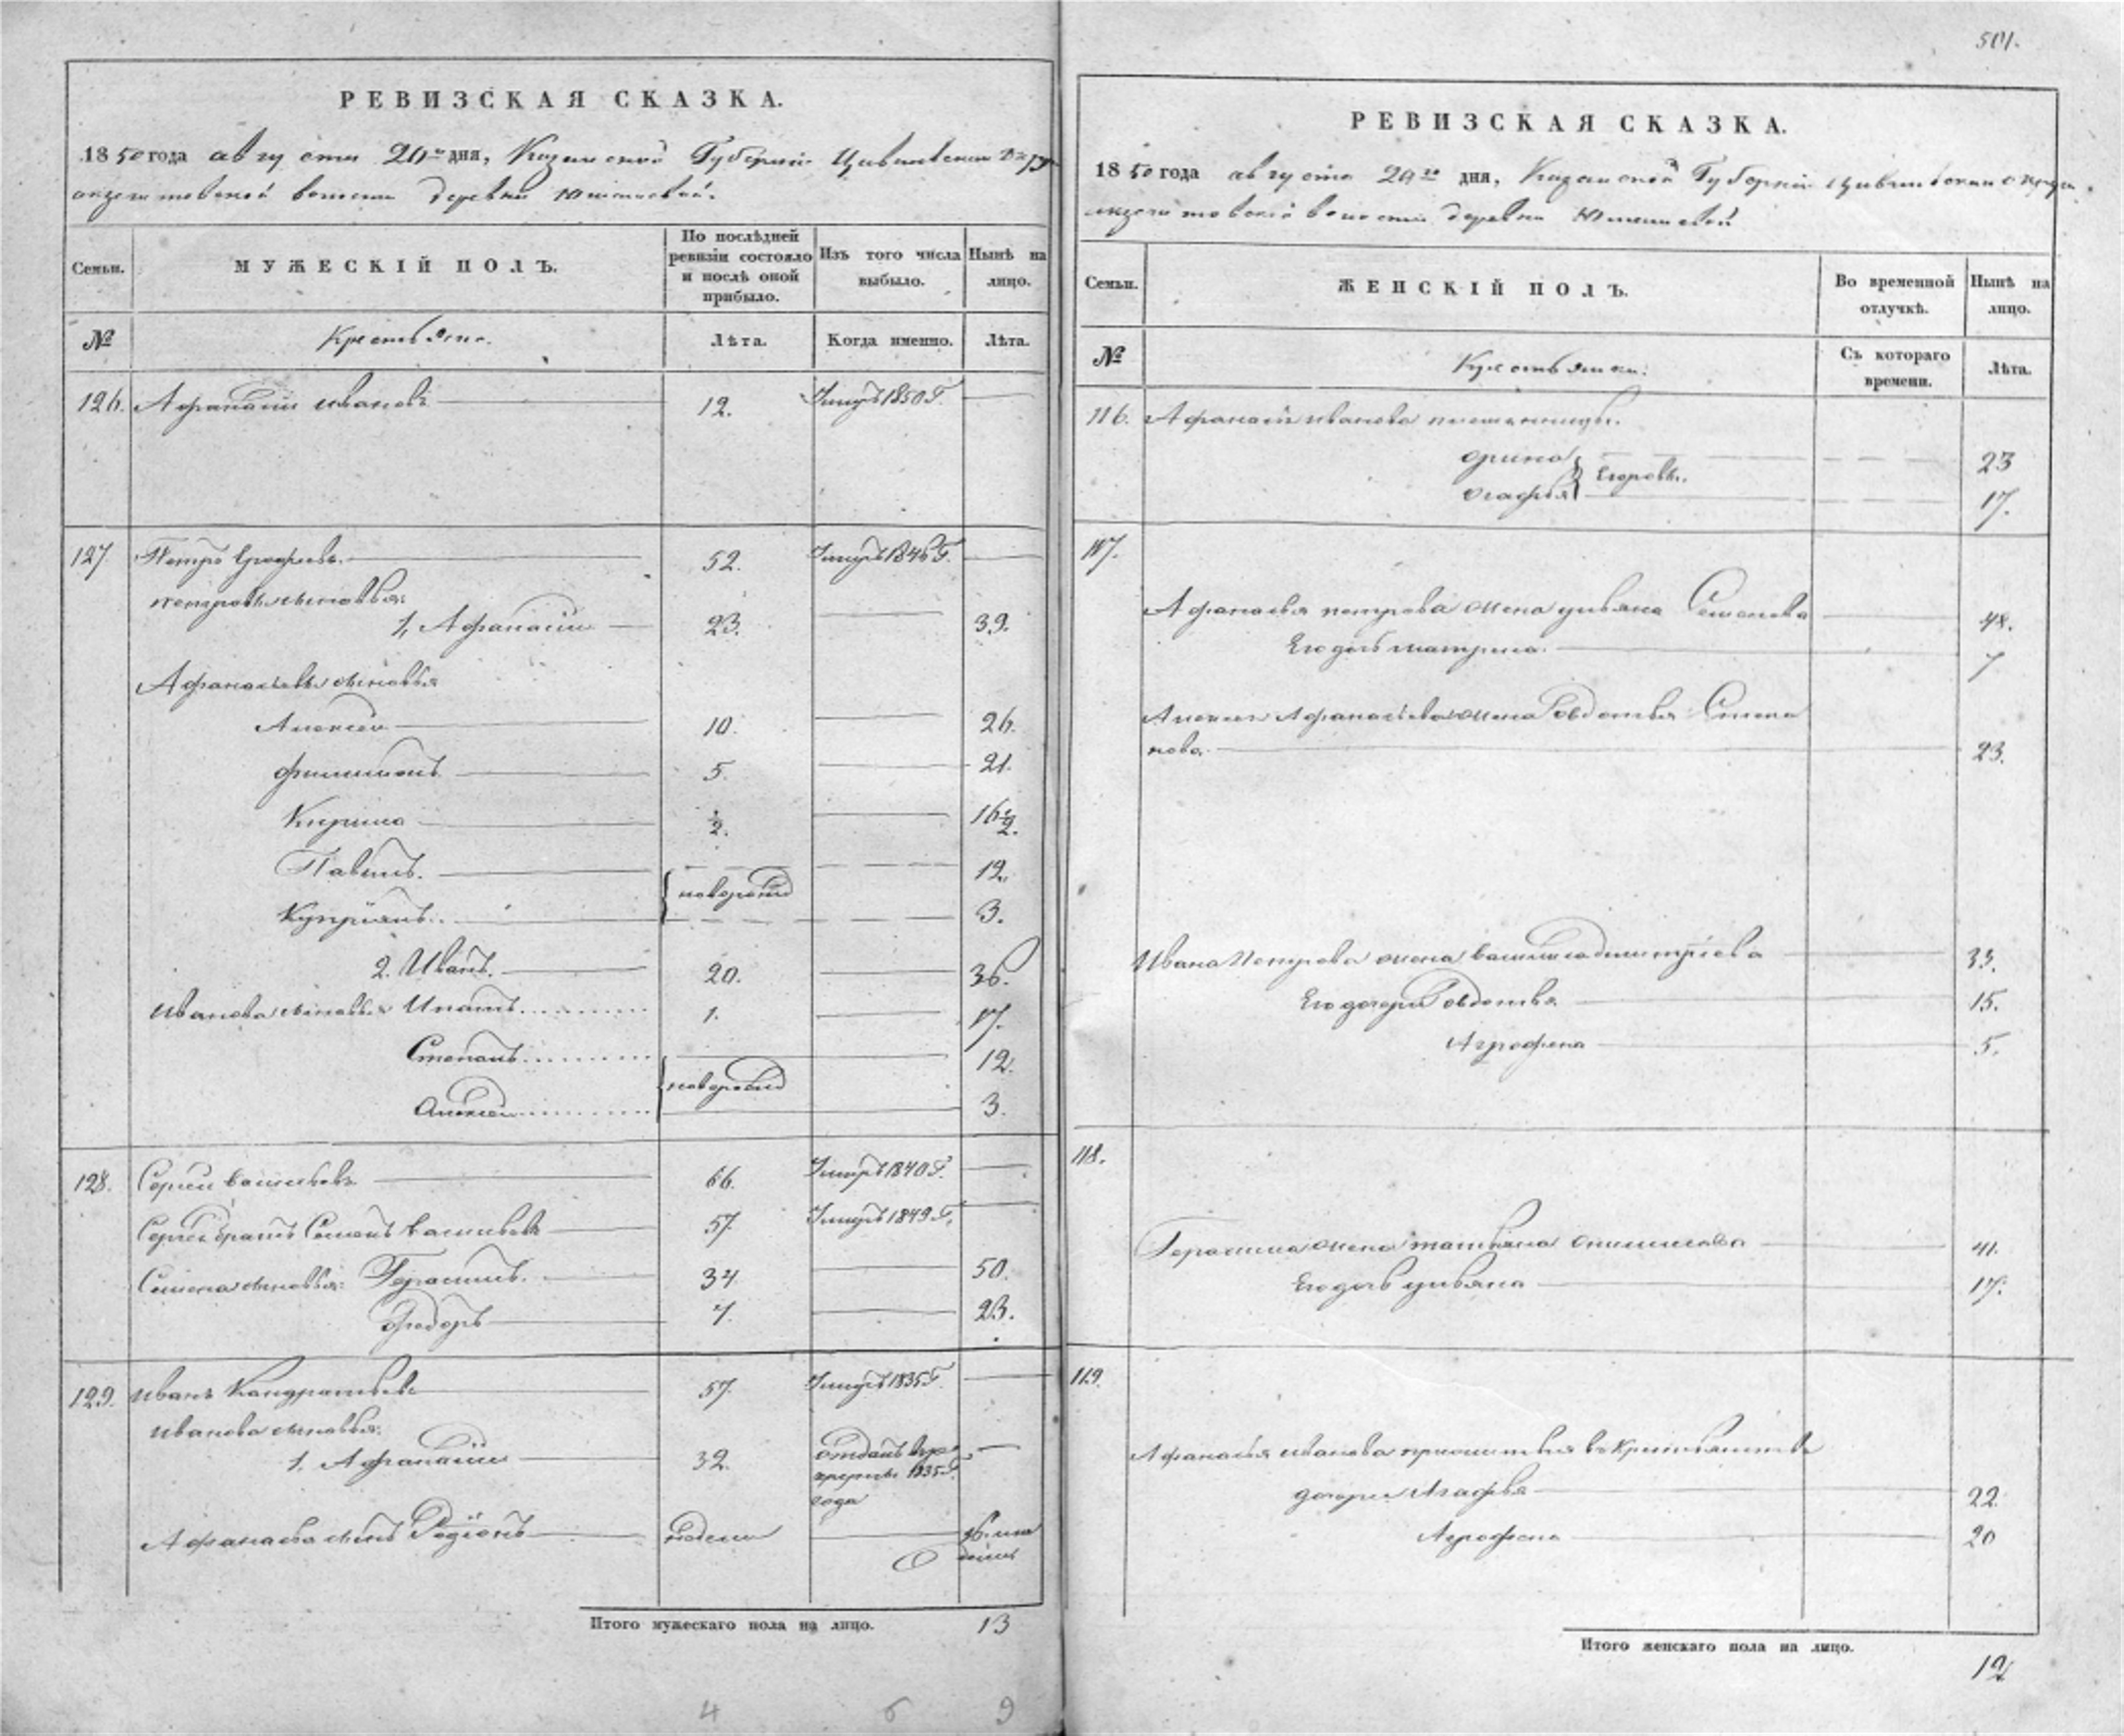 РЕВИЗСКАЯ СКАЗКА.
1850 года августа 20го дня, Казанской Губернии Цивильскаго
волости деревни
Семьи.
МУЖЕСКІЙ ПОЛЪ.
По послѣдней ревизіи состояло и послѣ оной прибыло.
Изъ того числа выбыло.
Нынѣ на лицо.
№
Крестьяне.
Лѣта.
Когда именно.
Лѣта.
126. Афанасій Ивановъ 12. Умеръ 1850 Г.
127. Петръ 52. Умеръ 1846 Г.
Петровы сыновья:
1, Афанасій 23. 39.
Афанасьевы сыновья
Алексей 10. 26.
Филимонъ 5. 21.
Кирила ½. 16½.
Павелъ. новорожд 12.
Купріянъ. 3.
2. Иванъ. 20. 36.
Ивановы сыновья Ипатъ 1. 17.
Степанъ новорожд 12.
Алексей 3.
128. Сергей Васильевъ 66. Умеръ 1840 Г.
Сергея братъ Семенъ Васильевъ 57. Умеръ 1849 Г.
Семена сыновья: Герасимъ. 34. 50.
Федоръ 7. 23.
129. Иванъ Кондратьевъ 57. Умеръ 1835 Г.
Ивана сыновья:
1. Афанасій 32. Отданъ въ рекруты 1835 Г.
года
Афанасья сынъ Родіонъ недели 16. лет
Итого мужескаго пола на лицо. 13
4 6 9
501.
РЕВИЗСКАЯ СКАЗКА.
1850 года августа 20го дня, Казанской Губерніи Цивильскаго округа
волости деревни
Семьи.
ЖЕНСКІЙ ПОЛЪ.
Во временной отлучкѣ.
Нынѣ на лицо.
№
Крестьянки.
Съ котораго времени.
Лѣта.
116. Афанасія Иванова племянницы.
Орина 23
Егоровы.
Огафья 17.
117.
Афанасья Петрова жена Ульяна Семенова 48.
Его дочь Матрена. 7
Алексея Афанасьева жена Овдотья Степа
нова. 23.
Ивана Петрова жена Василиса Дмитріева 33.
Его дочери Овдотья 15.
Агрофена 5.
118.
Герасима жена Татьяна 41.
Его дочь Ульяна 17.
119.
Афанасья Иванова
дочери Агафья 22.
Агрофена 20
Итого женскаго пола на лицо.
12